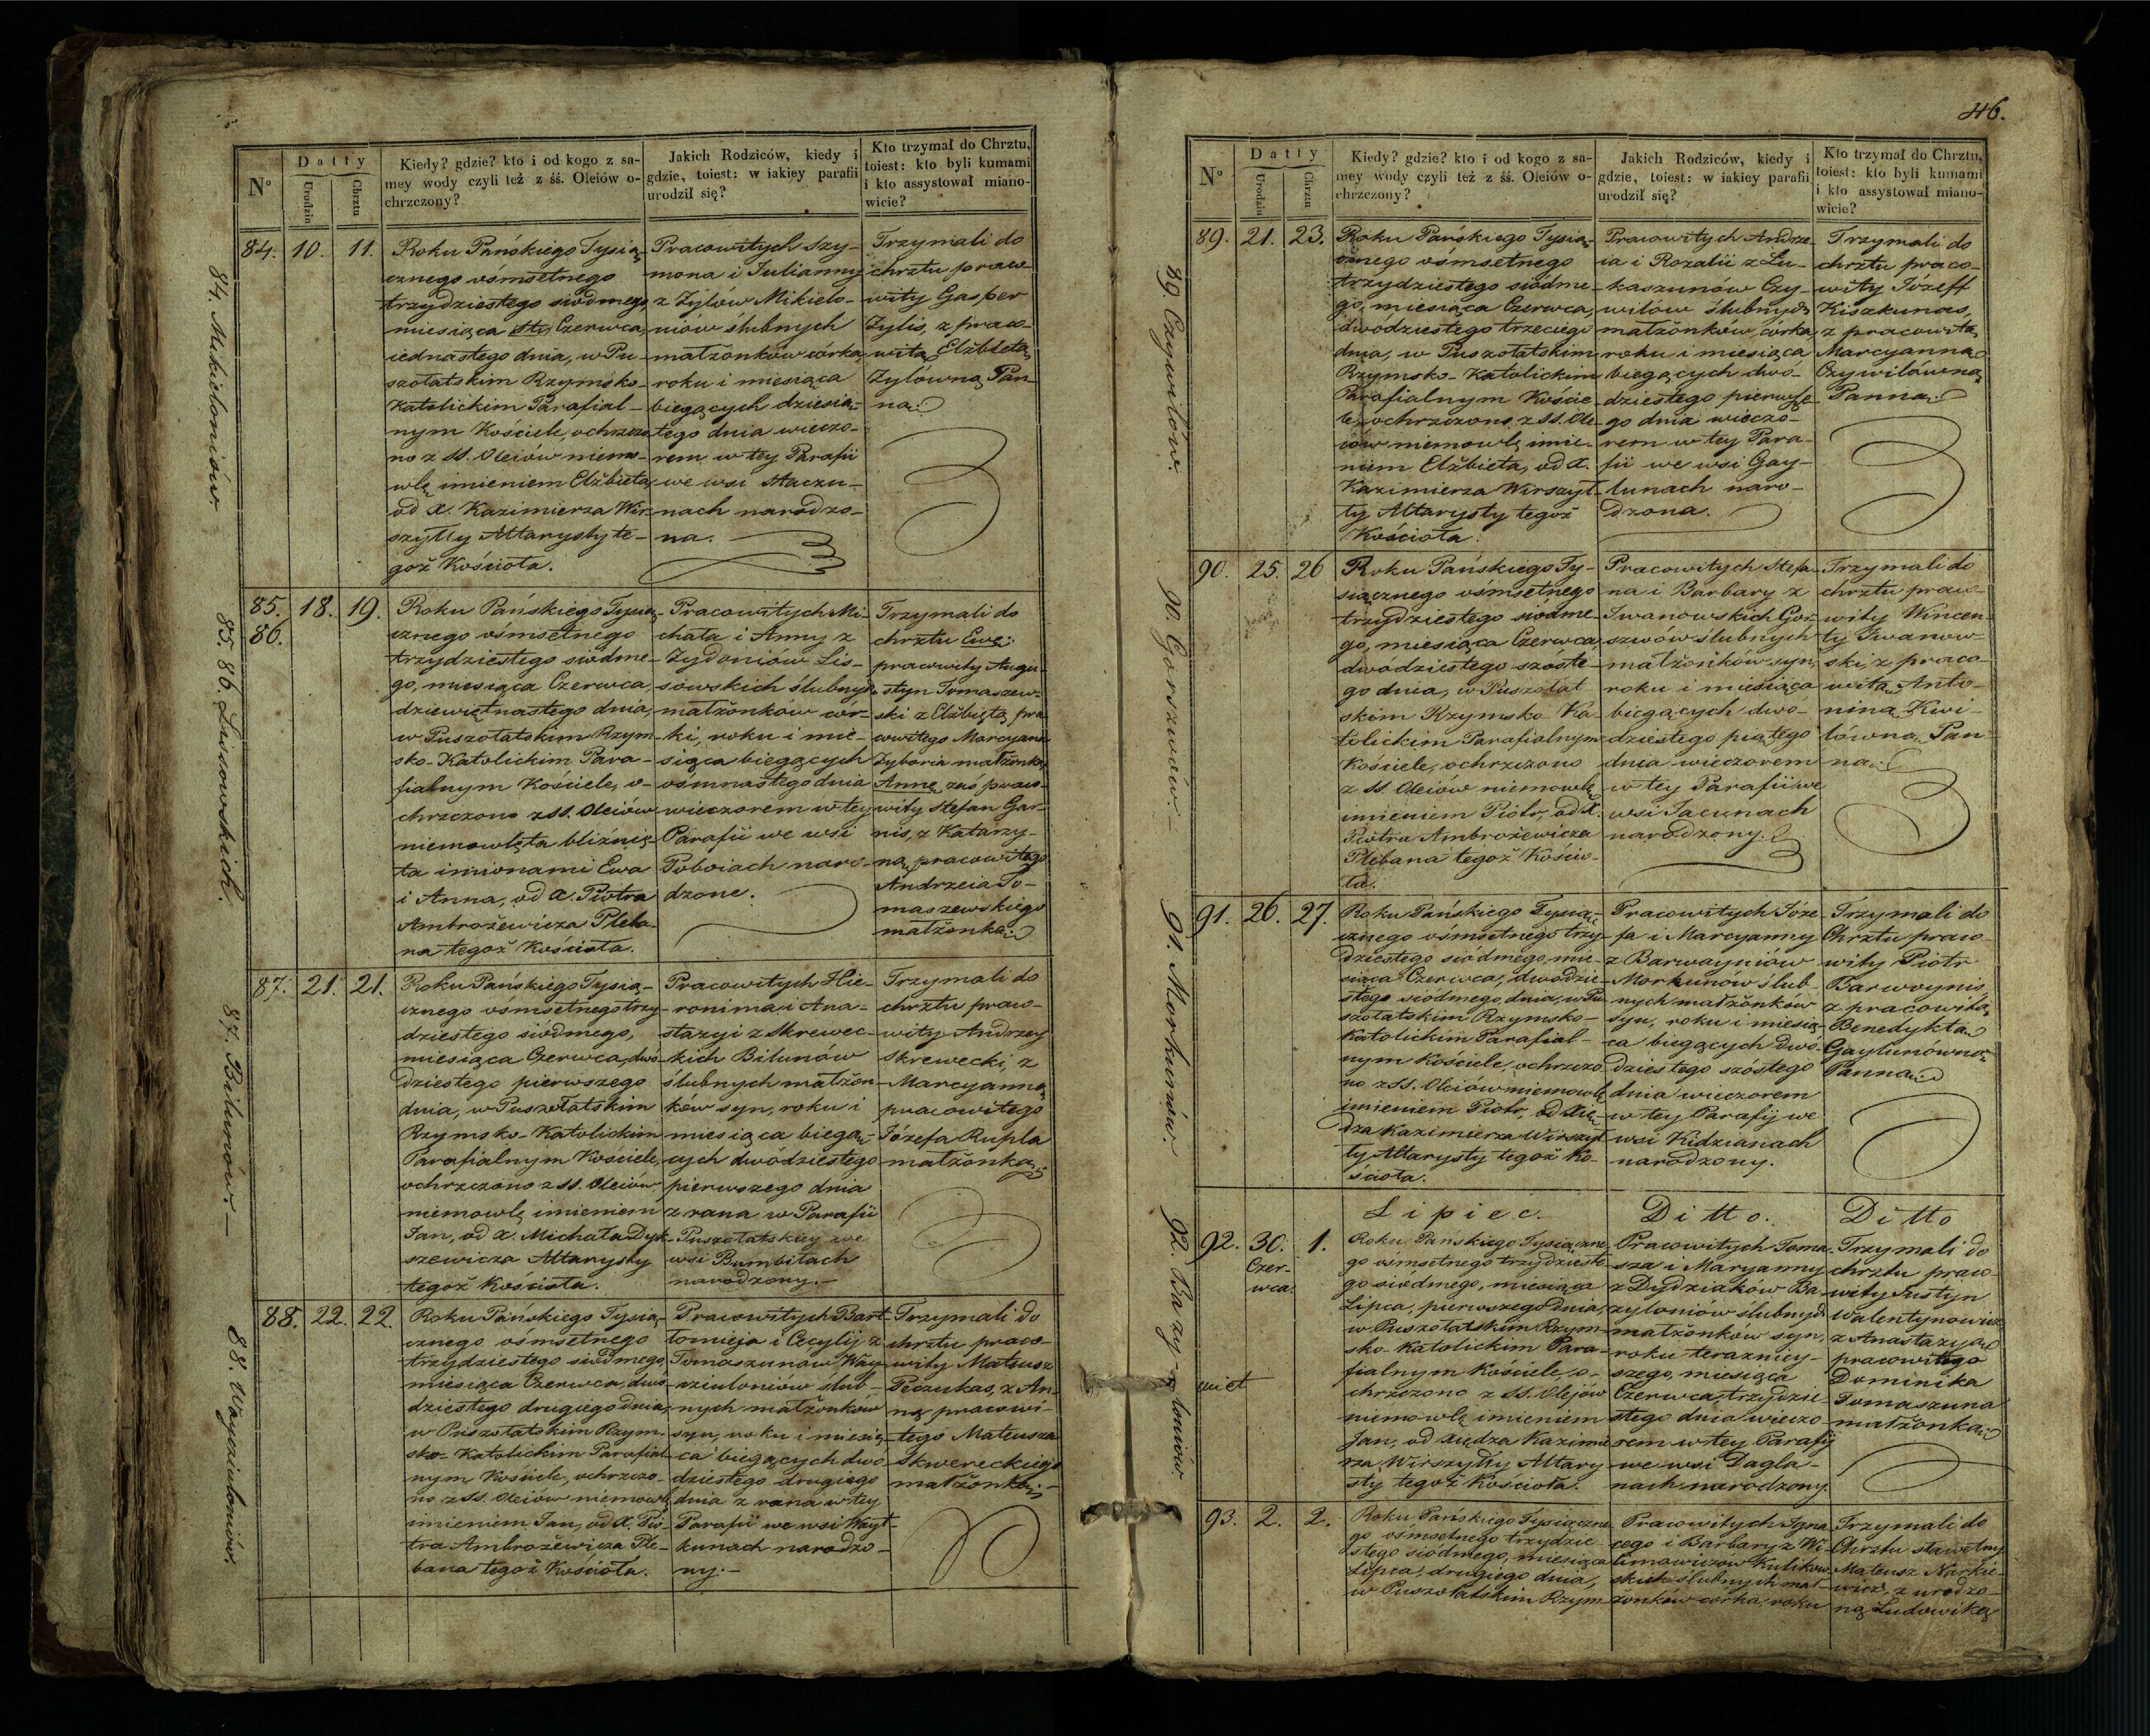 N°
Datty
Urodzin
Chrztu
Kiedy? gdzie? kto i od kogo z sa-
mey wody czyli też z śś. Oleiów o-
chrzczony?
Jakich Rodziców, kiedy i
gdzie, toiest: w iakiey parafii
urodził się?
Kto trzymał do Chrztu,
toiest: kto byli kumami
i kto assystował miano-
wicie?
84. Mikieloniów
84.
10.
11.
Roku Pańskiego Tysią-
cznego ośmsetnego
trzydziestego siódmego,
miesiąca Czerwca,
iednastego dnia, w Pu-
szołatskim Rzymsko-
Katolickim Parafial-
nym Kościele, ochrzczo-
no z SS. Oleiów niemo-
wlę imieniem Elżbieta,
od X. Kazimierza Wir-
szyłły Altarysty te-
goż Kościoła.
Pracowitych Szy-
mona i Julianny
z Zylów Mikielo-
niów ślubnych
małżonków córka,
roku i miesiąca
biegących dziesią-
tego dnia wieczo-
rem w tey Parafii
we wsi Staczu-
nach narodzo-
na.
Trzymali do
chrztu praco-
wity Gasper
Zylis, z praco-
witą Elżbietą
Zylówną Pan-
ną.
85. 86. Lissowskich.
85.
86.
18.
19.
Roku Pańskiego Tysią-
cznego ośmsetnego
trzydziestego siódme-
go, miesiąca Czerwca,
dziewiętnastego dnia,
w Puszołatskim Rzym-
sko-Katolickim Para-
fialnym Kościele, o-
chrzczono z SS. Oleiów
niemowlęta bliźnię-
ta imionami Ewa
i Anna, od X. Piotra
Ambrożewicza Pleba-
na tegoż Kościoła.
Pracowitych Mi-
chała i Anny z
Zydoniów Lis-
sowskich ślubnych
małżonków cór-
ki, roku i mie-
siąca biegących
ośmnastego dnia
wieczorem w tey
Parafii we wsi
Poboiach naro-
dzone.
Trzymali do
chrztu Ewę:
pracowity Augu-
styn Tomaszew-
ski z Elżbietą pra-
cowitego Marcyana
Zyboria małżonką,
Annę zaś praco-
wity Stefan Gar-
nis, z Katarzy-
ną pracowitego
Andrzeia To-
maszewskiego
małżonką.
87. Bilunów.
87.
21.
21.
Roku Pańskiego Tysią-
cznego ośmsetnego trzy-
dziestego siódmego,
miesiąca Czerwca, dwó-
dziestego pierwszego
dnia, w Puszołatskim
Rzymsko-Katolickim
Parafialnym Kościele,
ochrzczono z SS. Oleiów
niemowlę imieniem
Jan, od X. Michała Dyk-
szewicza Altarysty
tegoż Kościoła.
Pracowitych Hie-
ronima i Ana-
stazyi z Skrewec-
kich Bilunów
ślubnych małżon-
ków syn, roku i
miesiąca biegą-
cych dwódziestego
pierwszego dnia
z rana w Parafii
Puszołatskiey we
wsi Bumbilach
narodzony.
Trzymali do
chrztu praco-
wity Andrzey
Skrewecki, z
Marcyanną
pracowitego
Józefa Rupla
małżonką.
88. Wayeziuloniów.
88.
22.
22
Roku Pańskiego Tysią-
cznego ośmsetnego
trzydziestego siódmego,
miesiąca Czerwca, dwó-
dziestego drugiego dnia,
w Puszołatskim Rzym-
sko-Katolickim Parafial-
nym Kościele, ochrzczo-
no z SS. Oleiów niemowlę
imieniem Jan, od X. Pio-
tra Ambrożewicza Ple-
bana tegoż Kościoła.
Pracowitych Bart-
łomieja i Cecylij z
Tomaszunów Way-
cziuloniów ślub-
nych małżonków
syn, roku i miesią-
ca biegących dwó-
dziestego drugiego
dnia z rana w tey
Parafii we wsi Wayt-
kunach narodzo-
ny.
Trzymali do
chrztu praco-
wity Mateusz
Peczukas, z An-
ną pracowi-
tego Mateusza
Skwereckiego
małżonką.
46.
N°
Datty
Urodzin
Chrztu
Kiedy? gdzie? kto i od kogo z sa-
mey wody czyli też z śś. Oleiów o-
chrzczony?
Jakich Rodziców, kiedy i
gdzie, toiest: w iakiey parafii
urodził się?
Kto trzymał do Chrztu,
toiest: kto byli kumami
i kto assystował miano-
wicie?
89. Czywilów.
89.
21.
23.
Roku Pańskiego Tysią-
cznego ośmsetnego
trzydziestego siódme-
go, miesiąca Czerwca,
dwódziestego trzeciego
dnia, w Puszołatskim
Rzymsko-Katolickim
Parafialnym Koście-
le, ochrzczono z SS. Ole-
iów niemowlę imie-
niem Elżbieta, od X.
Kazimierza Wirszył-
ły Altarysty tegoż
Kościoła.
Pracowitych Andrze-
ia i Rozalii z Łu-
kaszunów Czy-
wilów ślubnych
małżonków córka,
roku i miesiąca
biegących dwó-
dziestego pierwsze-
go dnia wieczo-
rem w tey Para-
fii we wsi Gay-
lunach naro-
dzona.
Trzymali do
chrztu praco-
wity Józeff
Kiszkunas,
z pracowitą
Marcyanną
Czywilówną
Panną.
90. Gorszwów.
90.
25.
26
Roku Pańskiego Ty-
siącznego ośmsetnego
trzydziestego siódme-
go, miesiąca Czerwca,
dwódziestego szóste-
go dnia, w Puszołat-
skim Rzymsko-Ka-
tolickim Parafialnym
Kościele, ochrzczono
z SS. Oleiów niemowlę
imieniem Piotr, od X.
Piotra Ambrożewicza
Plebana tegoż Kościo-
ła.
Pracowitych Stefa-
na i Barbary z
Iwanowskich Gor-
szwów ślubnych
małżonków syn,
roku i miesiąca
biegących dwó-
dziestego piątego
dnia wieczorem
w tey Parafii we
wsi Jacunach
narodzony.
Trzymali do
chrztu praco-
wity Wincen-
ty Iwanow-
ski, z praco-
witą Anto-
niną Kwi-
lówną Pan-
ną.
91. Morkunów.
91.
26.
27.
Roku Pańskiego Tysią-
cznego ośmsetnego trzy-
dziestego siódmego, mie-
siąca Czerwca, dwódzie-
stego siódmego dnia, w Pu-
szołatskim Rzymsko-
Katolickim Parafial-
nym Kościele, ochrzczo-
no z SS. Oleiów niemowlę
imieniem Piotr, od Xię-
dza Kazimierza Wirszył-
ły Altarysty tegoż Ko-
ścioła.
Pracowitych Józe-
fa i Marcyanny
z Barwayniów
Morkunów ślub-
nych małżonków
syn, roku i miesią-
ca biegących dwó-
dziestego szóstego
dnia wieczorem
w tey Parafij we
wsi Kidzianach
narodzony.
Trzymali do
Chrztu praco-
wity Piotr
Barwoynis,
z pracowitą
Benedyktą
Gaylunówną
Panną.
Lipiec.
Ditto.
Ditto
92. Bazy-loniów.
92.
30.
Czer-
wca.
1.
Roku Pańskiego Tysiączne-
go ośmsetnego trzydzieste-
go siódmego, miesiąca
Lipca, pierwszego dnia,
w Puszołatskim Rzym-
sko-Katolickim Para-
fialnym Kościele, o-
chrzczono z SS. Olejów
niemowlę imieniem
Jan, od Xiędza Kazimie-
rza Wirszyłły Altary-
sty tegoż Kościoła.
Pracowitych Toma-
sza i Maryanny
z Dydziaków Ba-
zyloniów ślubnych
małżonków syn,
roku teraźniey-
szego, miesiąca
Czerwca, trzydzie-
stego dnia wieczo-
rem w tey Parafij
we wsi Dagla-
nach narodzony.
Trzymali do
chrztu praco-
wity Justyn
Walentynowicz,
z Anastazyą
pracowitego
Dominika
Tomaszuna
małżonką.
93.
2.
2.
Roku Pańskiego Tysiączne-
go ośmsetnego trzydzie-
stego siódmego, miesiąca
Lipca, drugiego dnia,
w Puszołatskim Rzym-
Pracowitych Igna-
cego i Barbary z Wi-
limowiczow Kulikow-
skich ślubnych mał-
żonków córka, roku
Trzymali do
Chrztu sławetny
Mateusz Narkie-
wicz, z urodzo-
ną Ludowiką